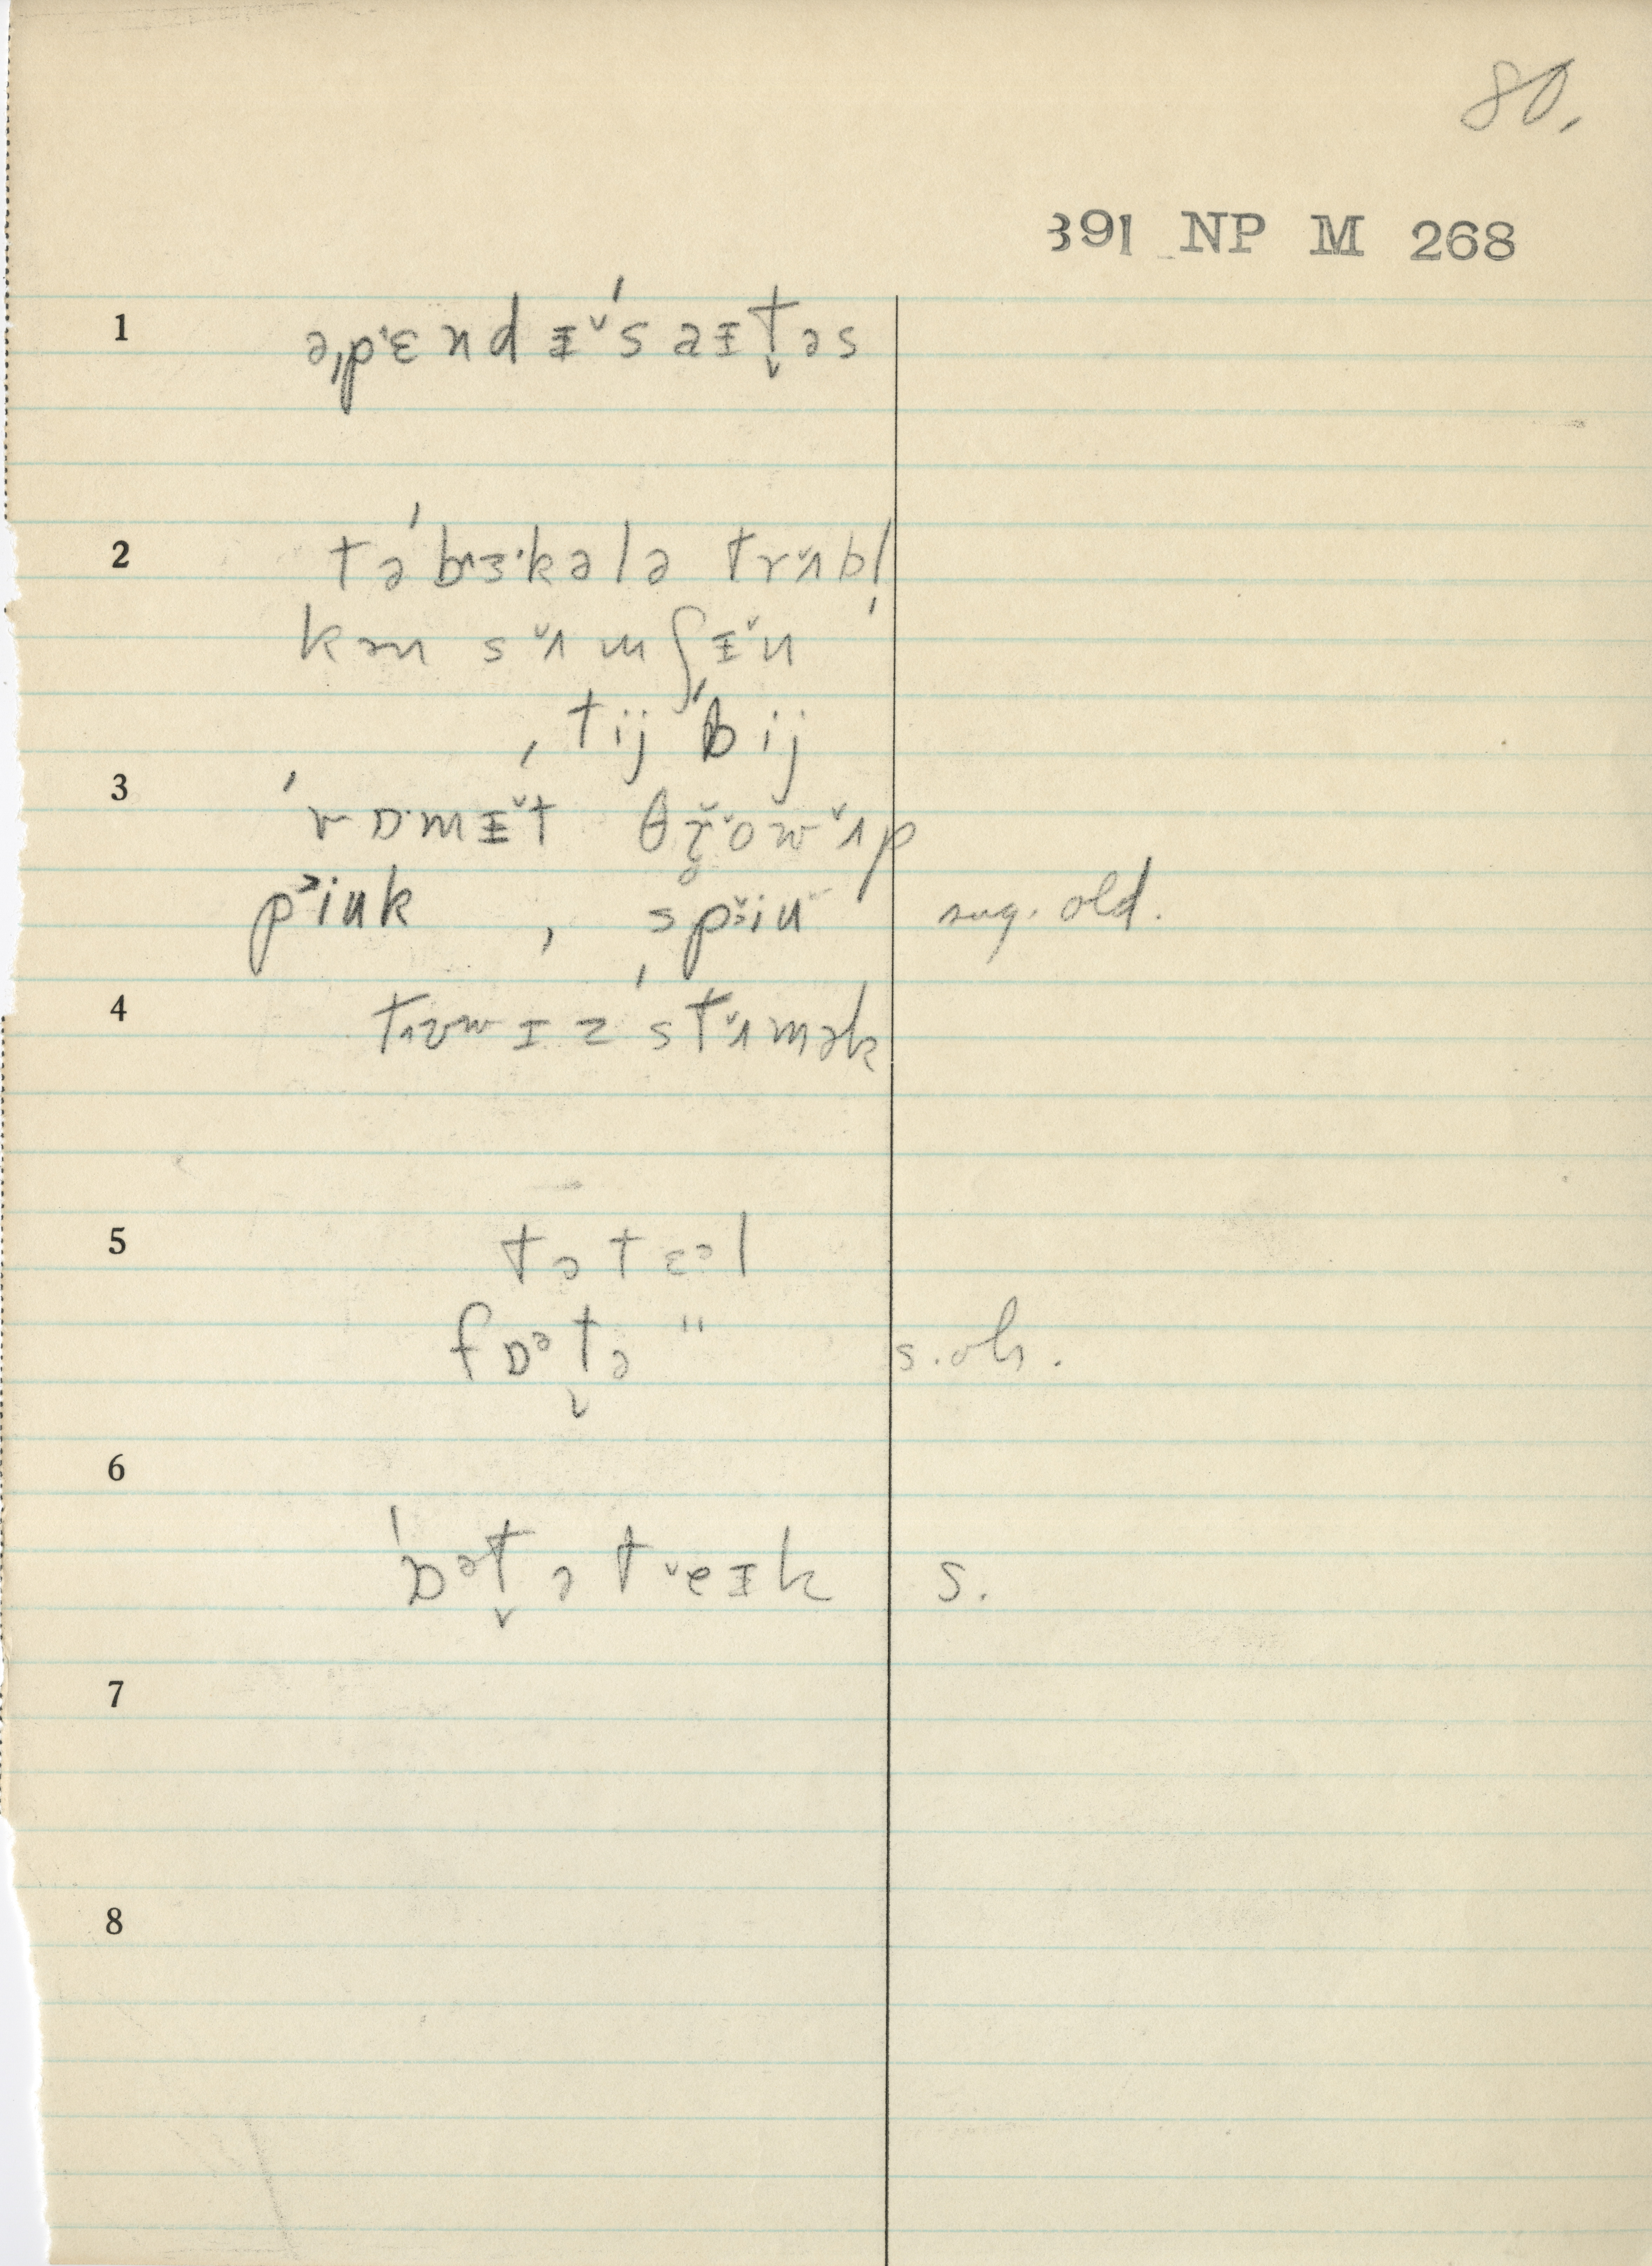 80.
391 NP M 268
1 ə‚pɛndɪ̆ˈsaɪt̬əs
2 təˈbɜ·kələ trʌ̆bl̩
kən sʌ̆mʃɪ̆n
‚tijˈbij
3 ˈvɒmɪ̆t θr̥ow ʌ̆p
piuk , spiu sug. old.
4 ɪz ˈstʌ̆mək
5 tə tɛəl
fɒət̬ə " s. oh.
6 ˈbɒət̬ə teɪk s.
7
8